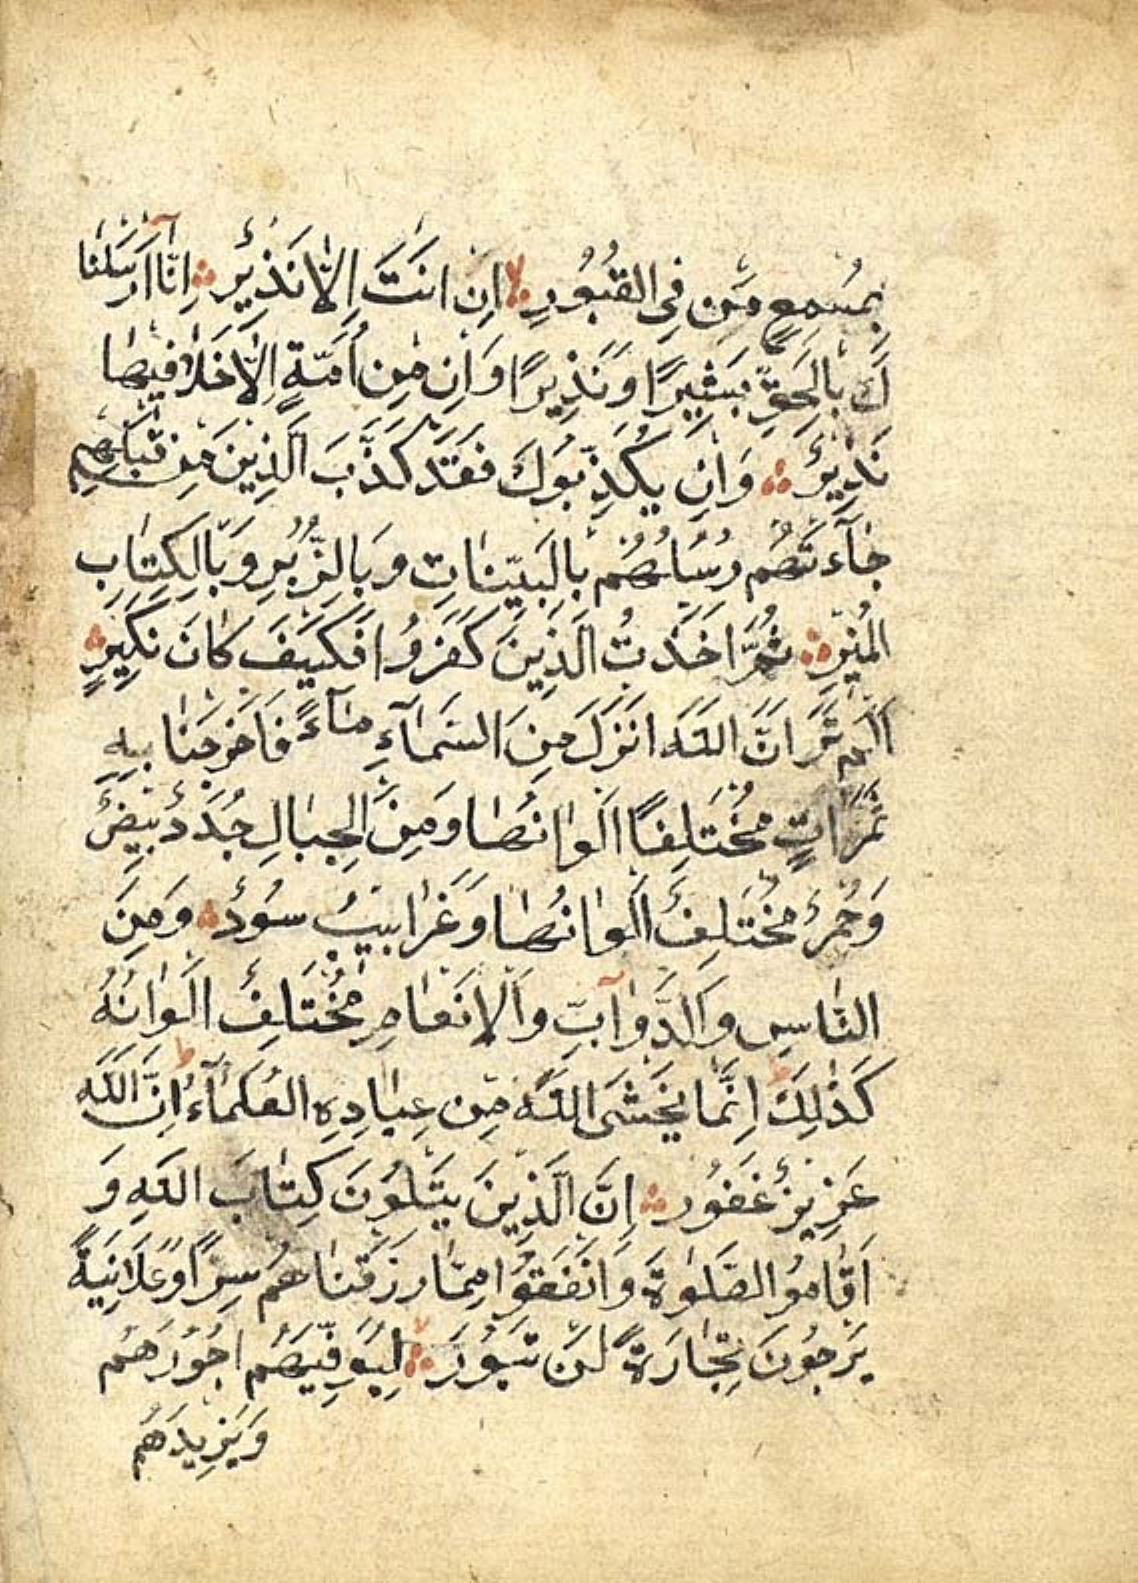 بِمُسْمِعٍ مَنْ فِي الْقُبُورِ اِنْ اَنْتَ اِلَّا نَذِيرٌ اِنَّا اَرْسَلْنَا
كَ بِالْحَقِّ بَشِيرًا وَنَذِيرًا وَاِنْ مِنْ اُمَّةٍ اِلَّا خَلَا فِيهَا
نَذِيرٌ وَاِنْ يُكَذِّبُوكَ فَقَدْ كَذَّبَ الَّذِينَ مِنْ قَبْلِهِمْ
جَآءَتْهُمْ رُسُلُهُمْ بِالْبَيِّنَاتِ وَبِالزُّبُرِ وَبِالْكِتَابِ
الْمُنِيرِ ثُمَّ اَخَذْتُ الَّذِينَ كَفَرُوا فَكَيْفَ كَانَ نَكِيرِ
اَلَمْ تَرَ اَنَّ اللّٰهَ اَنْزَلَ مِنَ السَّمَآءِ مَآءً فَاَخْرَجْنَا بِهِ
ثَمَرَاتٍ مُخْتَلِفًا اَلْوَانُهَا وَمِنَ الْجِبَالِ جُدَدٌ بِيضٌ
وَحُمْرٌ مُخْتَلِفٌ اَلْوَانُهَا وَغَرَابِيبُ سُودٌ وَمِنَ
النَّاسِ وَالدَّوَآبِّ وَالْاَنْعَامِ مُخْتَلِفٌ اَلْوَانُهُ
كَذٰلِكَ اِنَّمَا يَخْشَى اللّٰهَ مِنْ عِبَادِهِ الْعُلَمَآءُ اِنَّ اللّٰهَ
عَزِيزٌ غَفُورٌ اِنَّ الَّذِينَ يَتْلُونَ كِتَابَ اللّٰهِ وَ
اَقَامُوا الصَّلٰوةَ وَاَنْفَقُوا مِمَّا رَزَقْنَاهُمْ سِرًّا وَعَلَانِيَةً
يَرْجُونَ تِجَارَةً لَنْ تَبُورَ لِيُوَفِّيَهُمْ اُجُورَهُمْ
وَيَزِيدَهُمْ